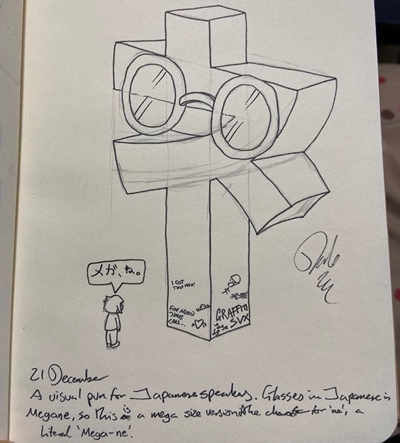 メガ、ね。
I GOT
THIS MUM
FOR
CALL..
GRAFFITI
SUX
21 December
A visual pun for Japanese speakers. Glasses in Japanese is
Megane, so this is a mega size version of the character for 'ne', a
literal 'Mega-ne'.